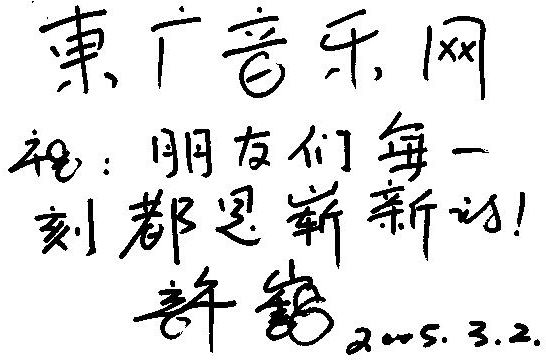 東广音乐网
祝：朋友们每一
刻都是崭新的！
許鹤 2005.3.2.